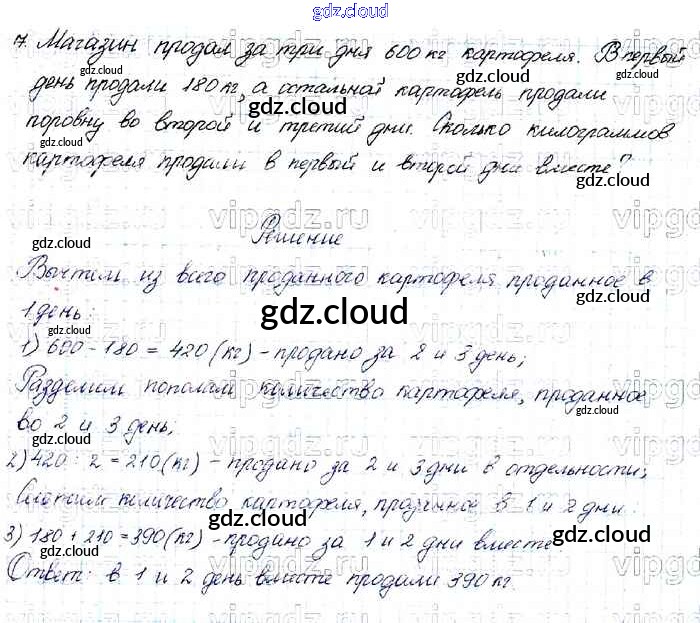 gdz.cloud
7. Магазин продал за три дня 600 кг картофеля. В первый
день продали 180 кг, а остальной картофель продали
поровну во второй и третий дни. Сколько килограммов
картофеля продали в первый и второй дни вместе?
Решение
Вычтем из всего проданного картофеля проданное в
1 день:
1) 600 - 180 = 420 (кг) - продано за 2 и 3 день;
Разделим пополам количество картофеля, проданное
во 2 и 3 день;
2) 420 : 2 = 210 (кг) - продано за 2 и 3 дни в отдельности;
Сложим количество картофеля, в 1 и 2 дни:
3) 180 + 210 = 390 (кг) - продано за 1 и 2 дни вместе
Ответ: в 1 и 2 день вместе продали 390 кг.